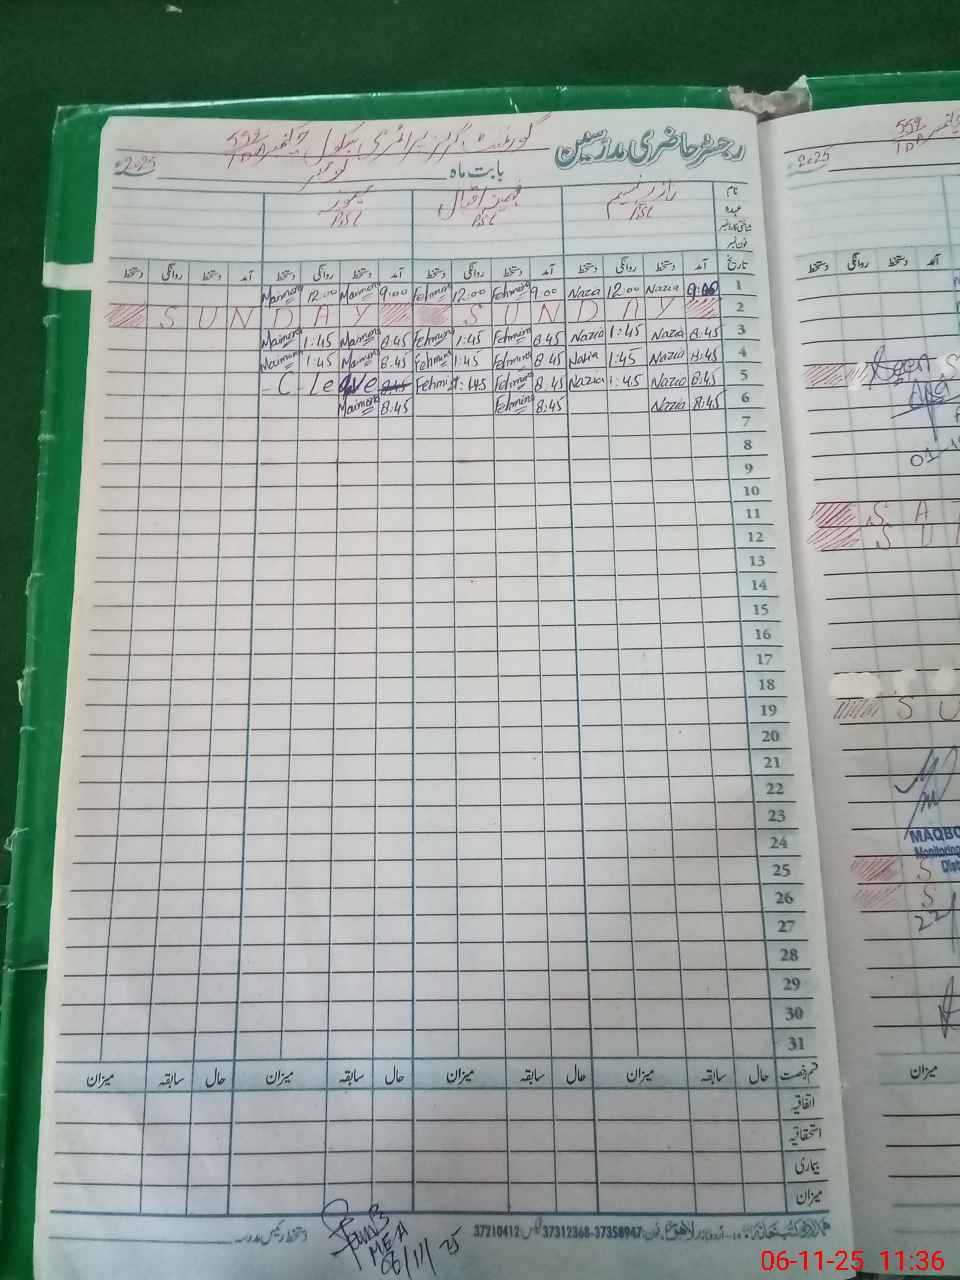 رجسٹر حاضری مدرسین
گورنمنٹ گرلز پرائمری سکول چکنمبر 552/TDA
بابت ماہ نومبر 2025
نام نازیہ نسیم فہمینہ اقبال میمونہ
عہدہ PST PST PST
شناختی کارڈ نمبر
فون نمبر
تاریخ آمد دستخط روانگی دستخط آمد دستخط روانگی دستخط آمد دستخط روانگی دستخط آمد دستخط روانگی دستخط
Maimona 12:00 Maimona 9:00 Fehmina 12:00 Fehmina 9:00 Nazia 12:00 Nazia 9:00 1
S U N D A Y S U N D A Y 2
Maimona 1:45 Maimona 8:45 Fehmina 1:45 Fehmina 8:45 Nazia 1:45 Nazia 8:45 3
Maimona 1:45 Maimona 8:45 Fehmina 1:45 Fehmina 8:45 Nazia 1:45 Nazia 8:45 4
- C - Leave 8:45 Fehmina 1:45 Fehmina 8:45 Nazia 1:45 Nazia 8:45 5
Maimona 8:45 Fehmina 8:45 Nazia 8:45 6
7
8
9
10
11
12
13
14
15
16
17
18
19
20
21
22
23
24
25
26
27
28
29
30
31
قسم رخصت حال سابقہ میزان حال سابقہ میزان حال سابقہ میزان حال سابقہ میزان
اتفاقیہ
استحقاقیہ
بیماری
میزان
اردو بازار لاہور فون: 37312368-37358947 فیکس: 37210412
دستخط رئیس مدرسہ
MEA
06/11/25
552/TDA
2025
آمد دستخط روانگی دستخط
S
01-1
S A T
S U
S U
MAQBO
Monitoring
Dist
S
S
22/
میزان
06-11-25 11:36